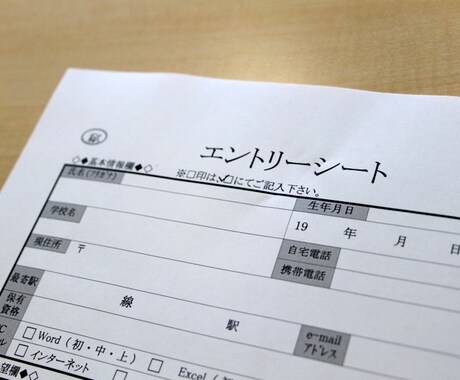 エントリーシート
◇◆基本情報欄◆◇
※□印は、☑にてご記入下さい。
氏名(フリガナ)
生年月日
19 年 月 日
学校名
自宅電話
現住所 〒
携帯電話
最寄駅 線 駅
e-mail
アドレス
保有
資格
□ Word (初・中・上) □ Excel (
□ インターネット
望欄◆◇